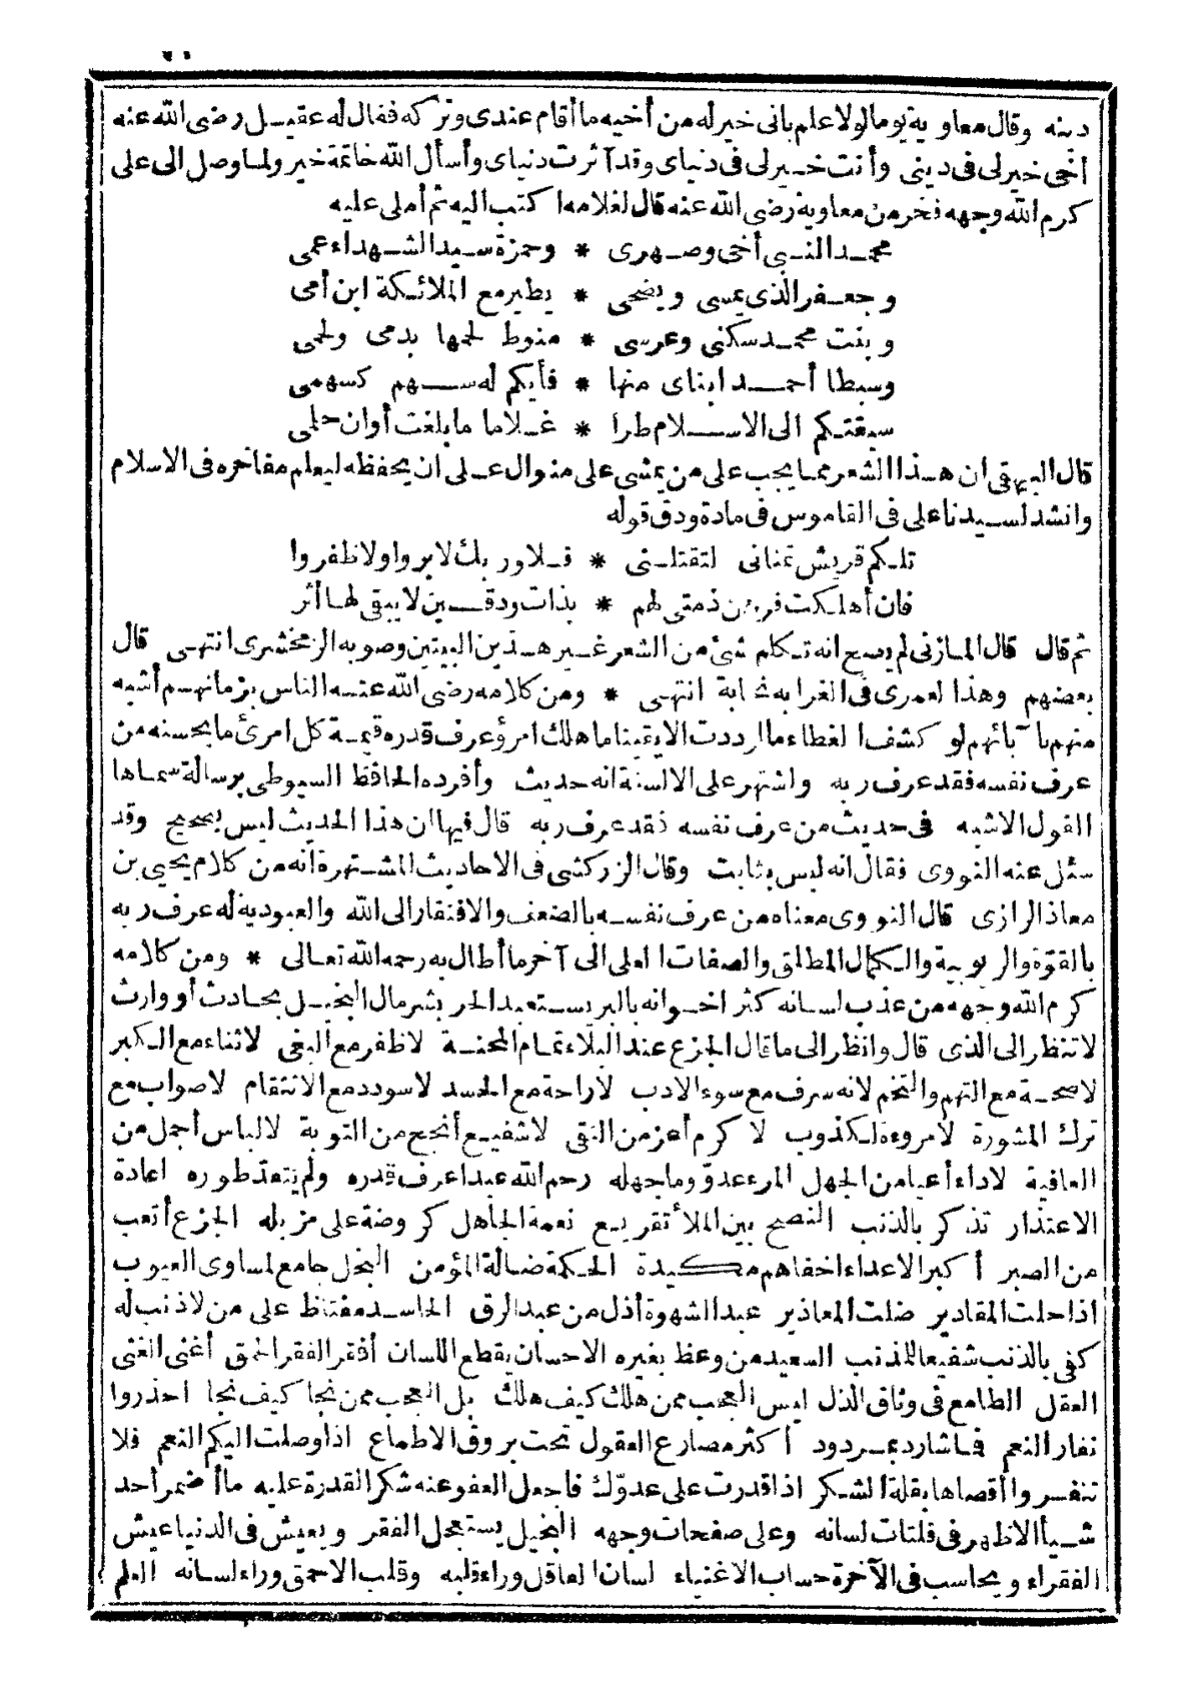 دينه وقال معاوية يوما لولا علم بانى خير له من أخيه ما أقام عندى وتركه فقال له عقيل رضى الله عنه
أخى خير لى فى دينى وأنت خير لى فى دنياى وقد آثرت دنياى وأسأل الله خاتمة خير ولما وصل الى على
كرم الله وجهه فخر من معاوية رضى الله عنه قال لغلامه اكتب اليه ثم أملى عليه
محمد النبى أخى وصهرى * وحمزة سيد الشهداء عمى
وجعفر الذى يمسى ويضحى * يطير مع الملائكة ابن أمى
وبنت محمد سكنى وعرسى * منوط لحمها بدمى ولحمى
وسبطا أحمد ابناى منها * فأيكم له سهم كسهمى
سبقتكم الى الاسلام طرا * غلاما ما بلغت أوان حلمى
قال البيهقى ان هذا الشعر مما يجب على من يمشى على منوال على ان يحفظه ليعلم مفاخره فى الاسلام
وانشد لسيدنا على فى القاموس فى مادة ودق قوله
تلكم قريش تمنانى لتقتلنى * فلا وربك لا بروا ولا ظفروا
فان أهلكت فرهن ذمتى لهم * بذات ودقين لا يبقى لها أثر
ثم قال قال المازنى لم يصح انه تكلم شئ من الشعر غير هذين البيتين وصوبه الزمخشرى انتهى قال
بعضهم وهذا لعمرى فى الغرابه غابة انتهى * ومن كلامه رضى الله عنه الناس بزمانهم أشبه
منهم بآبائهم لو كشف الغطاء ما ازددت الا يقينا ما هلك امرؤ عرف قدره قيمة كل امرئ ما يحسنه من
عرف نفسه فقد عرف ربه واشتهر على الالسنة انه حديث وأفرده الحافظ السيوطى برسالة سماها
القول الاشبه فى حديث من عرف نفسه فقد عرف ربه قال فيها ان هذا الحديث ليس بصحيح وقد
سئل عنه النووى فقال انه ليس بثابت وقال الزركشى فى الاحاديث المشتهرة انه من كلام يحيى بن
معاذ الرازى قال النووى معناه من عرف نفسه بالضعف والافتقار الى الله والعبودية له عرف ربه
بالقوة والربوبية والكمال المطلق والصفات العلى الى آخر ما أطال به رحمه الله تعالى * ومن كلامه
كرم الله وجهه من عذب لسانه كثر اخوانه بالبر يستعبد الحر بشر مال البخيل بحادث أو وارث
لا تنظر الى الذى قال وانظر الى ما قال الجزع عند البلاء تمام المحنة لا ظفر مع البغى لا ثناء مع الكبر
لا صحة مع النهم والتخم لا نه سرف مع سوء الادب لا راحة مع الحسد لا سودد مع الانتقام لا صواب مع
ترك المشورة لا مروءة لكذوب لا كرم أعز من التقى لا شفيع أنجح من التوبة لا لباس أجمل من
العافية لا داء أعيا من الجهل المرء عدو ما جهله رحم الله عبدا عرف قدره ولم يتعد طوره اعادة
الاعتذار تذكر بالذنب النصح بين الملأ تقريع نعمة الجاهل كروضة على مزبله الجزع أتعب
من الصبر أكبر الاعداء اخفاهم مكيدة الحكمة ضالة المؤمن البخل جامع لمساوى العيوب
اذا حلت المقادير ضلت المعاذير عبد الشهوة أذل من عبد الرق الحاسد مغتاظ على من لا ذنب له
كفى بالذنب شفيعا للمذنب السعيد من وعظ بغيره الاحسان يقطع اللسان أفقر الفقر الحمق أغنى الغنى
العقل الطامع فى وثاق الذل ليس العجب ممن هلك كيف هلك بل العجب ممن نجا كيف نجا احذروا
نفار النعم فما شارد بمردود أكثر مصارع العقول تحت بروق الاطماع اذا وصلت اليكم النعم فلا
تنفروا أقصاها بقلة الشكر اذا قدرت على عدوّك فاجعل العفو عنه شكر القدرة عليه ما أضمر أحد
شيأ الا ظهر فى فلتات لسانه وعلى صفحات وجهه البخيل يستعجل الفقر ويعيش فى الدنيا عيش
الفقراء ويحاسب فى الآخرة حساب الاغنياء لسان العاقل وراء قلبه وقلب الاحمق وراء لسانه العلم